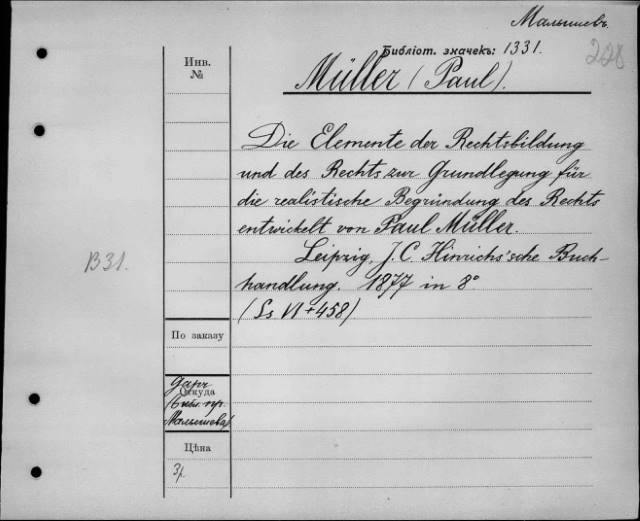 Малышевъ.
Библіот. значекъ: 1331.
228
Инв.
№
Müller (Paul).
Die Elemente der Rechtsbildung
und des Rechts zur Grundlegung für
die realistische Begründung des Rechts
entwickelt von Paul Müller.
Leipzig, J. C. Hinrichs'sche Buch-
handlung. 1877 in 8°
(Ss VI + 458)
B31.
По заказу
Откуда
Даръ
Малышева)
Цѣна
3р.